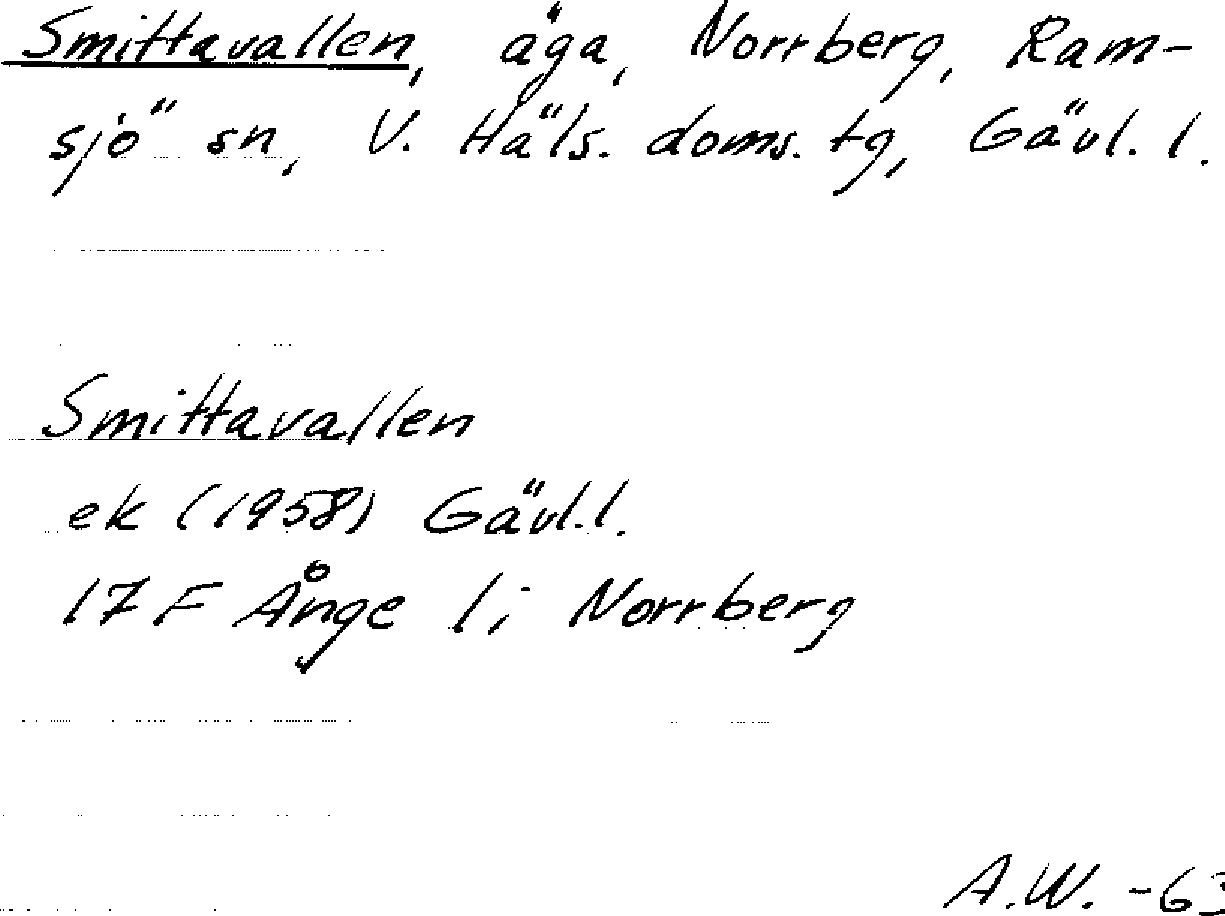 Smittavallen, äga, Norrberg, Ram-
sjö sn, V. Häls. doms. tg, Gävl. l.
Smittavallen
ek (1958) Gävl. l.
17 F Ånge 1; Norrberg
A.W. -63